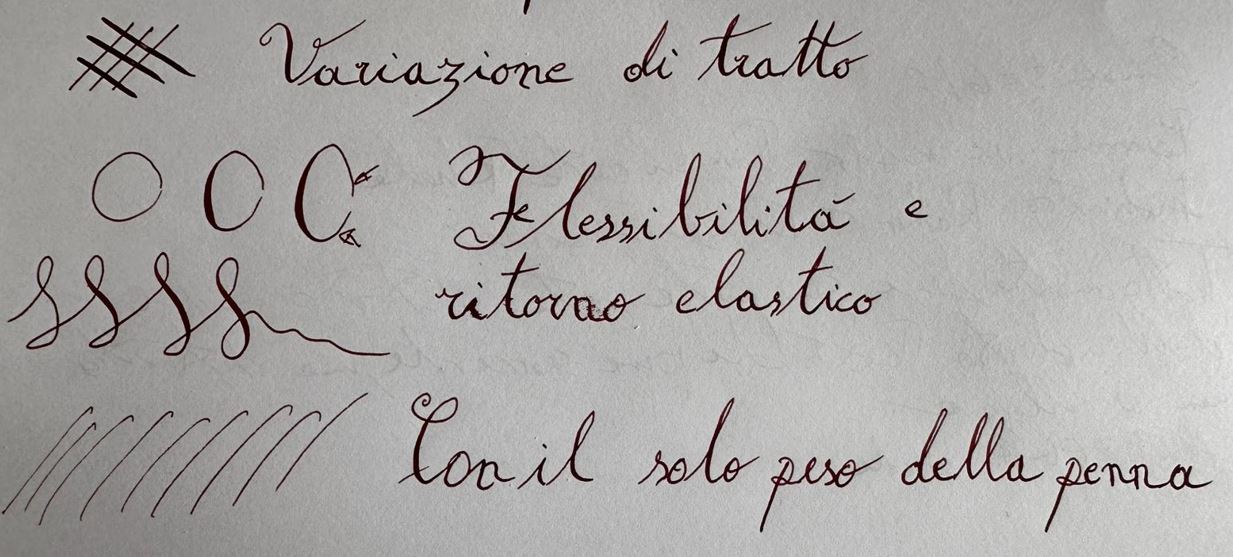 Variazione di tratto
Flessibilità e
ritorno elastico
Con il solo peso della penna